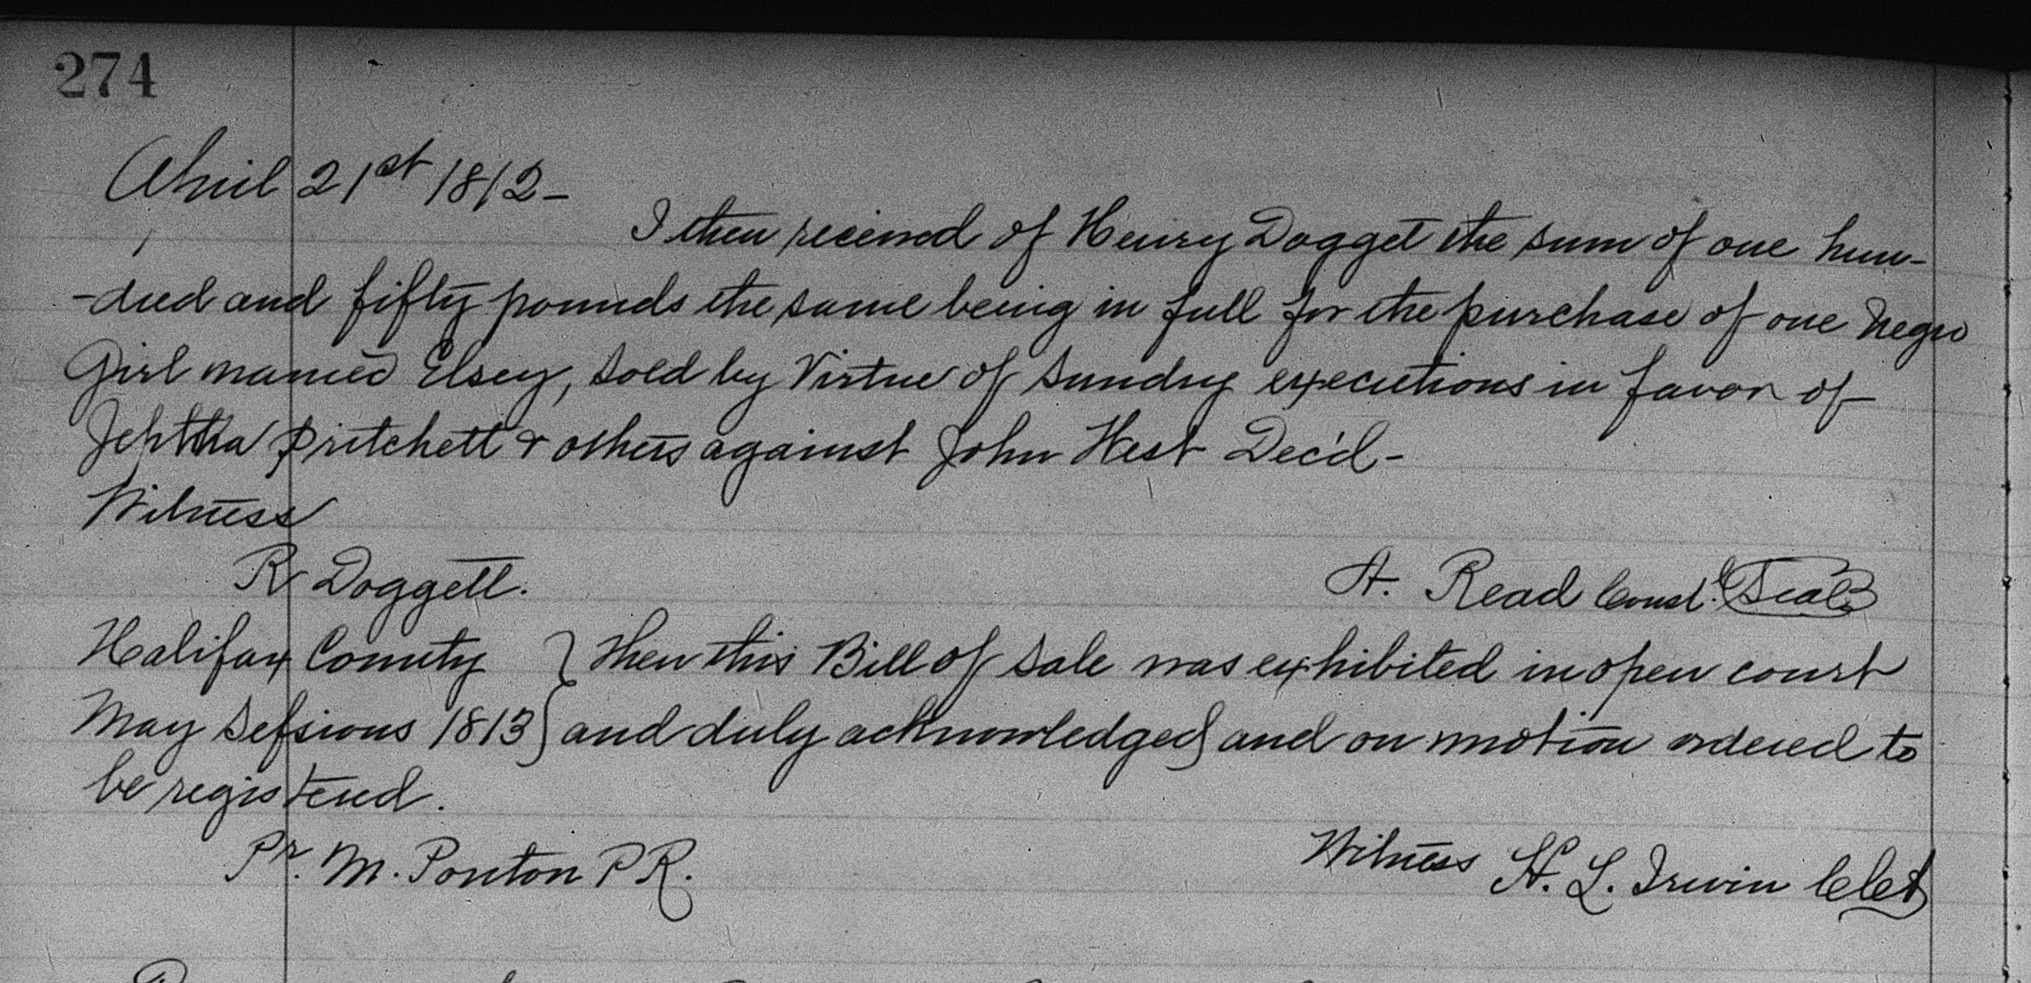 274
April 21st 1812-
I then received of Henry Dogget the sum of one hun-
-dred and fifty pounds the same being in full for the purchase of one Negro
Girl named Elsey, sold by Virtue of sundry executions in favor of
Jephtha Pritchett & others against John West Dec'd-
Witness
R Doggett. A. Read Const. Seal
Halifax County } Then this Bill of sale was exhibited in open court
May Sessions 1813 } and duly acknowledged and on motion ordered to
be registered.
Pr. M. Ponton P R. Witness H. L. Irwin